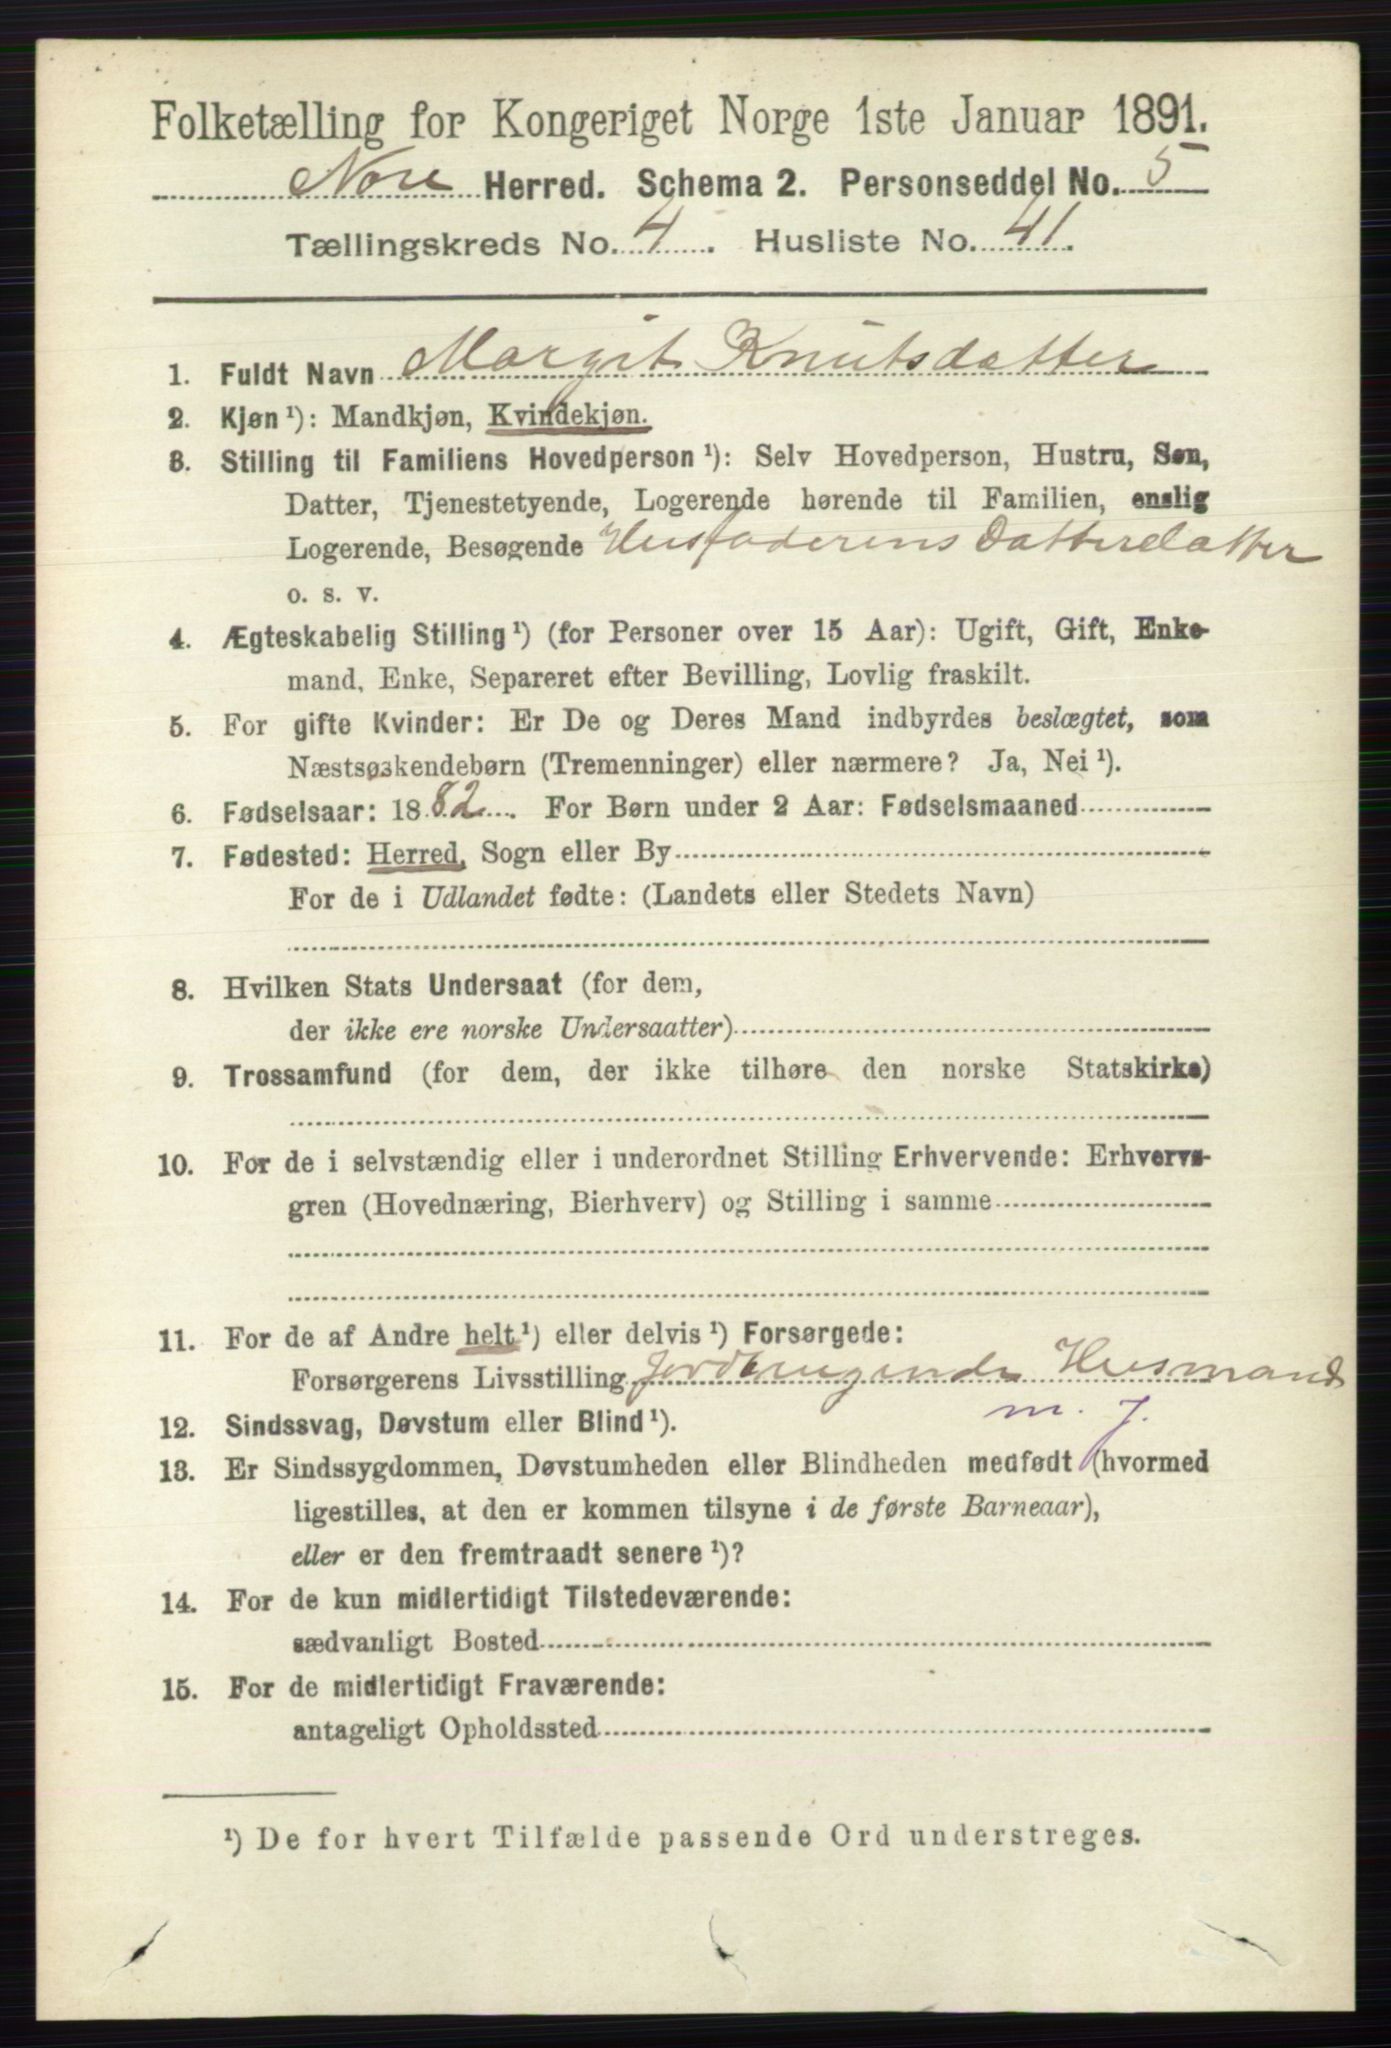 Folketælling for Kongeriget Norge 1ste Januar 1891.
Nore Herred. Schema 2. Personseddel No. 5
Tællingskreds No. 4. Husliste No. 41.
1. Fuldt Navn Margit Knutsdatter
2. Kjøn¹): Mandkjøn, Kvindekjøn.
3. Stilling til Familiens Hovedperson¹): Selv Hovedperson, Hustru, Søn,
Datter, Tjenestetyende, Logerende hørende til Familien, enslig
Logerende, Besøgende Husfaderens Datterdatter
o. s. v.
4. Ægteskabelig Stilling¹) (for Personer over 15 Aar): Ugift, Gift, Enke-
mand, Enke, Separeret efter Bevilling, Lovlig fraskilt.
5. For gifte Kvinder: Er De og Deres Mand indbyrdes beslægtet, som
Næstsøskendebørn (Tremenninger) eller nærmere? Ja, Nei¹).
6. Fødselsaar: 1882. For Børn under 2 Aar: Fødselsmaaned
7. Fødested: Herred, Sogn eller By
For de i Udlandet fødte: (Landets eller Stedets Navn)
8. Hvilken Stats Undersaat (for dem,
der ikke ere norske Undersaatter)
9. Trossamfund (for dem, der ikke tilhøre den norske Statskirke)
10. For de i selvstændig eller i underordnet Stilling Erhvervende: Erhvervs-
gren (Hovednæring, Bierhverv) og Stilling i samme
11. For de af Andre helt¹) eller delvis¹) Forsørgede:
Forsørgerens Livsstilling Jordbrugende Husmand
m. J.
12. Sindssvag, Døvstum eller Blind¹).
13. Er Sindssygdommen, Døvstumheden eller Blindheden medfødt (hvormed
ligestilles, at den er kommen tilsyne i de første Barneaar),
eller er den fremtraadt senere¹)?
14. For de kun midlertidigt Tilstedeværende:
sædvanligt Bosted
15. For de midlertidigt Fraværende:
antageligt Opholdssted
¹) De for hvert Tilfælde passende Ord understreges.